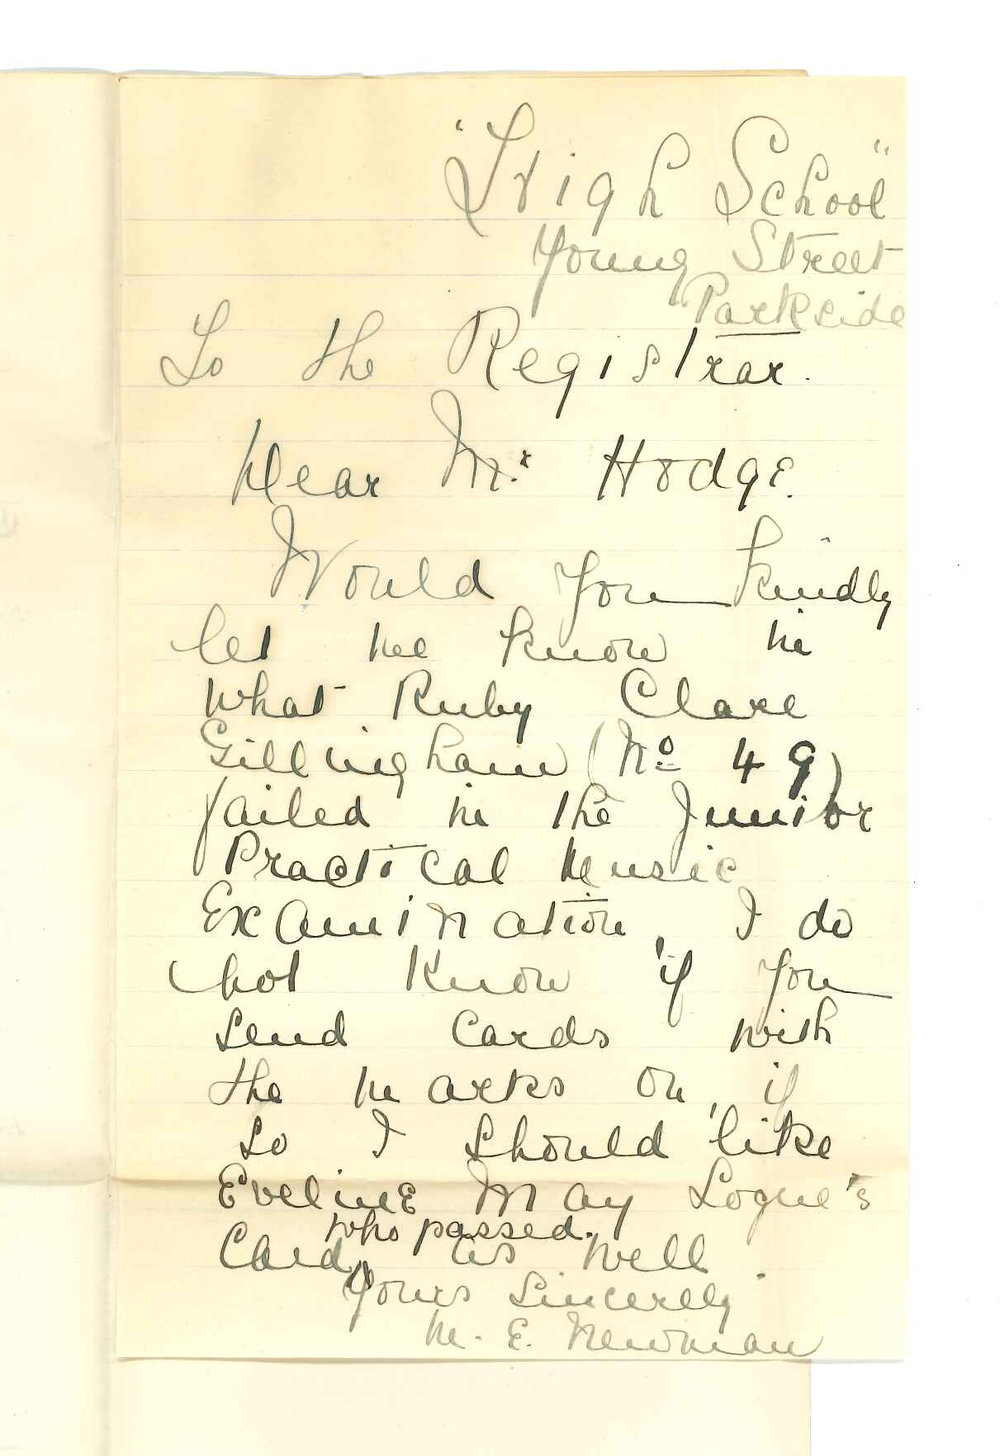 "Leigh School"
Young Street
Parkside
To the Registrar.
Dear Mr. Hodge.
Would you kindly
let me know in
what Ruby Clare
Gillingham (No 49)
failed in the Junior
Practical Music
Examination, I do
not know if you
send cards with
the marks on, if
so I should like
Eveline May Logue's
who passed.
Card, as well.
Yours Sincerely
M. E. Newman